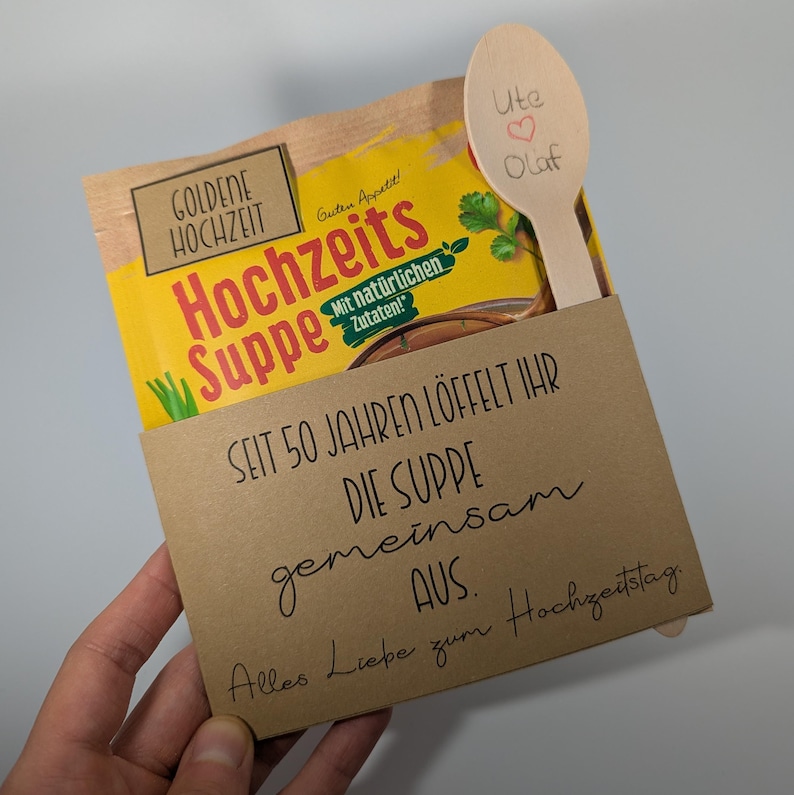 Ute
♡
Olaf
GOLDENE
HOCHZEIT
Guten Appetit!
Hochzeits
Suppe
Mit natürlichen
Zutaten!*
SEIT 50 JAHREN LÖFFELT IHR
DIE SUPPE
gemeinsam
AUS.
Alles Liebe zum Hochzeitstag.